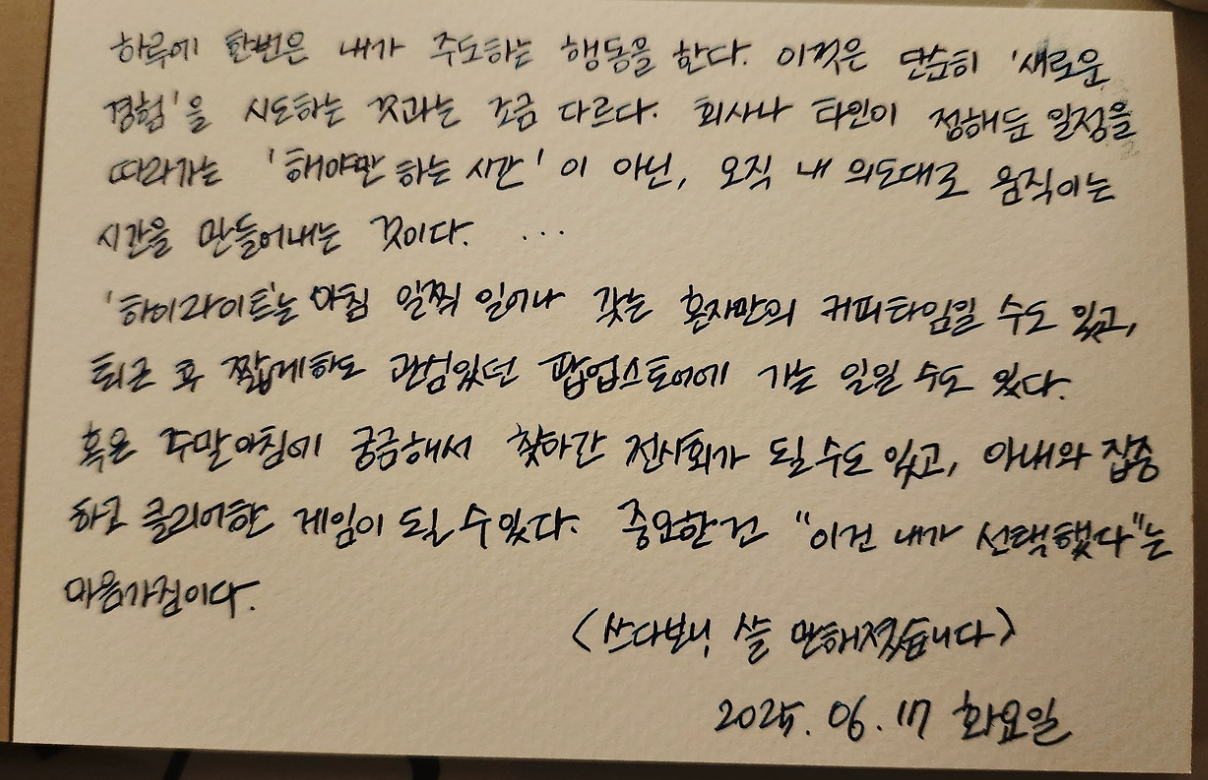 하루에 한번은 내가 주도하는 행동을 한다. 이것은 단순히 '새로운
경험'을 시도하는 것과는 조금 다르다. 회사나 타인이 정해둔 일정을
따라가는 '해야만 하는 시간'이 아닌, 오직 내 의도대로 움직이는
시간을 만들어내는 것이다. ...
'하이라이트'는 아침 일찍 일어나 갖는 혼자만의 커피타임일 수도 있고,
퇴근 후 짧게라도 관심있던 팝업스토어에 가는 일일 수도 있다.
혹은 주말아침에 궁금해서 찾아간 전시회가 될 수도 있고, 아내와 집중
하고 클리어한 게임이 될 수 있다. 중요한건 "이건 내가 선택했다"는
마음가짐이다.
<쓰다보니, 쓸 만해졌습니다>
2025. 06. 17 화요일